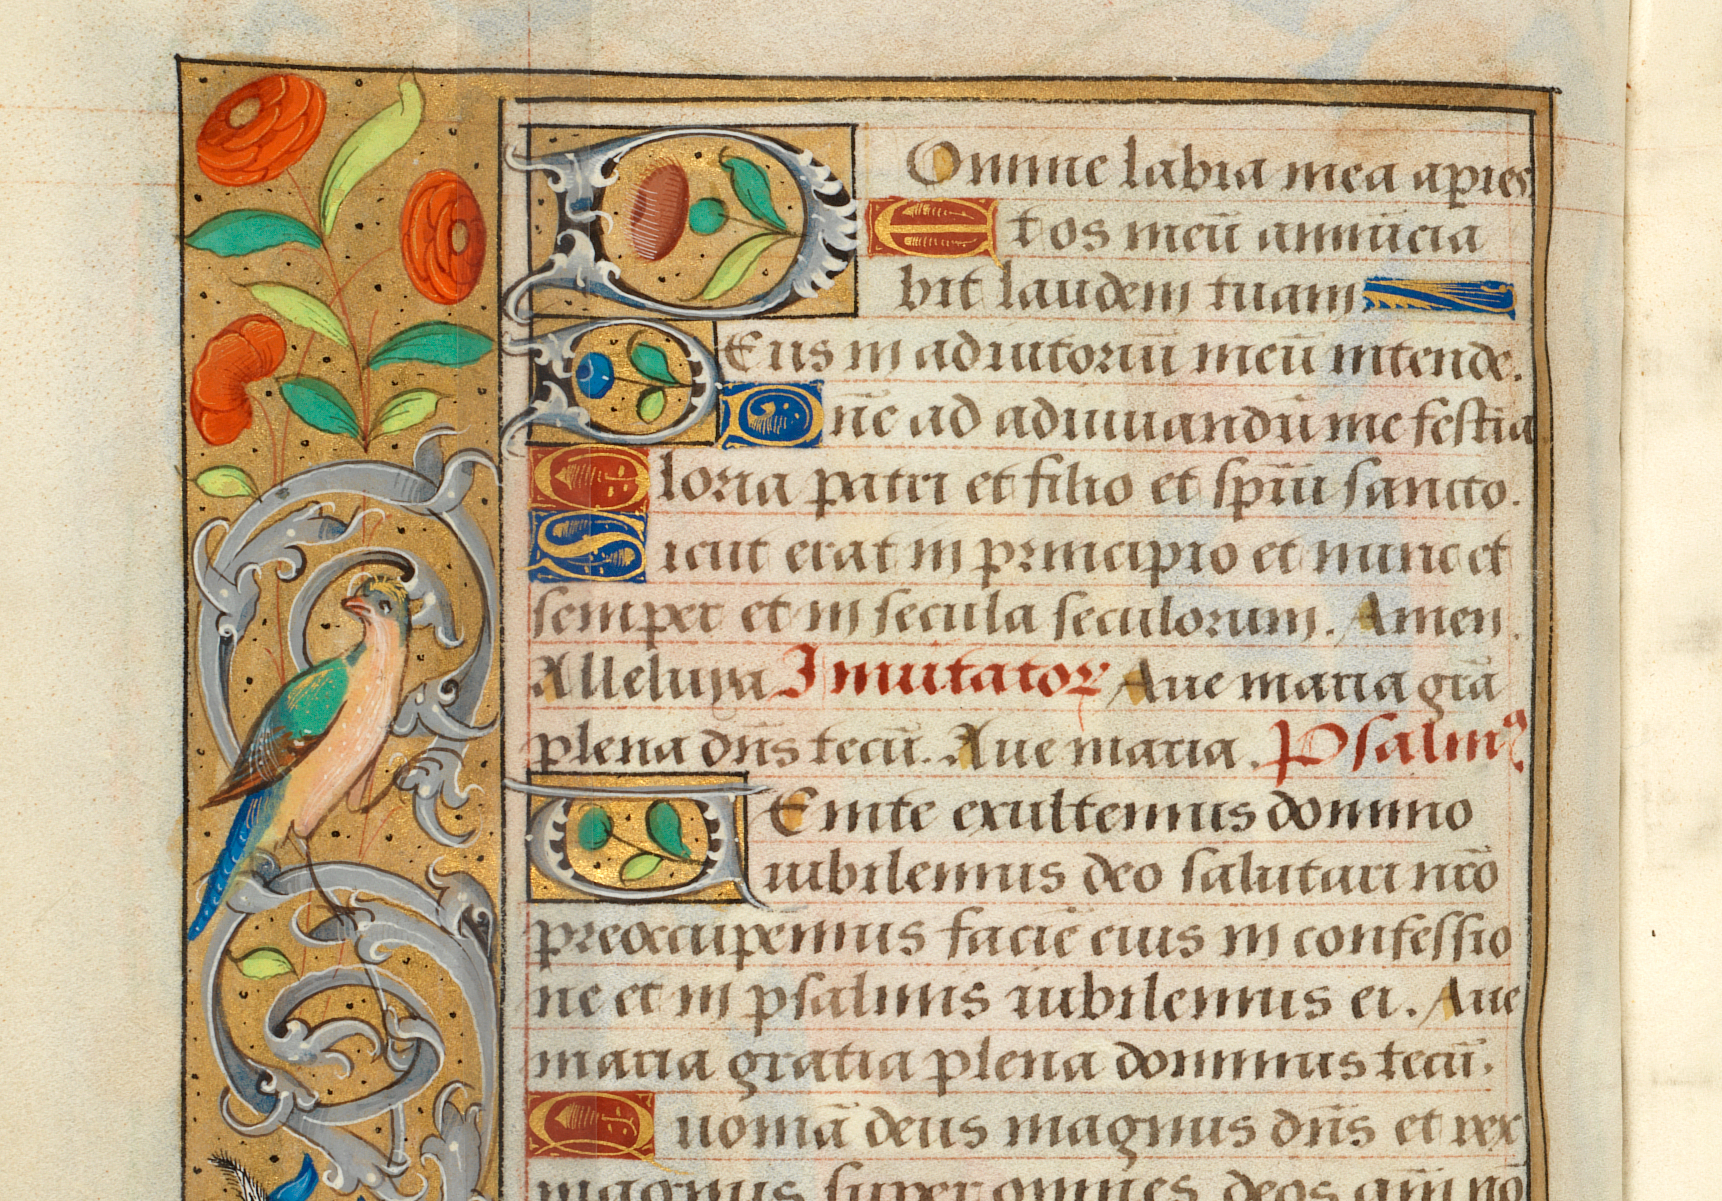 DOmine labia mea apries
Et os meū annūcia
bit laudem tuam
DEus in adiutoriū meū intende.
Dn̄e ad adiuuandū me festīa
Gloria patri et filio et sp̄iū sancto.
Sicut erat in principio et nunc et
semper et in secula seculorum. Amen.
Alleluya Inuitatoꝛ Aue maria grā
plena dn̄s tecū. Aue maria. Psalmꝰ
VEnite exultemus domino
iubilemus deo salutari nr̄o
preoccupemus faciē eius in confessio
ne et in psalmis iubilemus ei. Aue
maria gratia plena dominus tecū.
Quoniā deus magnus dn̄s et rex
magnus super omnes deos qm̄ nō